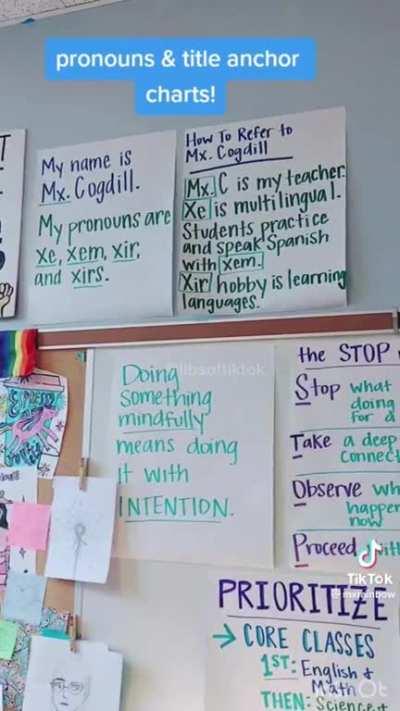 pronouns & title anchor
charts!
My name is
Mx. Cogdill.
My pronouns are
xe, xem, xir,
and xirs.
How To Refer to
Mx. Cogdill
Mx. C is my teacher.
Xe is multilingual.
Students practice
and speak Spanish
with xem.
Xir hobby is learning
languages.
@libsoftiktok
Doing
something
mindfully
means doing
it with
INTENTION.
the STOP
Stop what
doing
for a
Take a deep
Connect
Observe wh
happen
now
Proceed with
TikTok
PRIORITIZE
→ CORE CLASSES
1ST: English +
Math
THEN: Science +